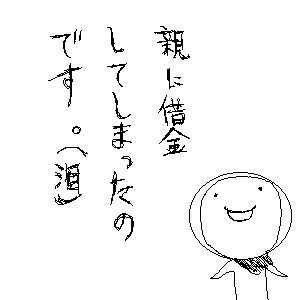 親に借金
してしまったの
です。(涙)